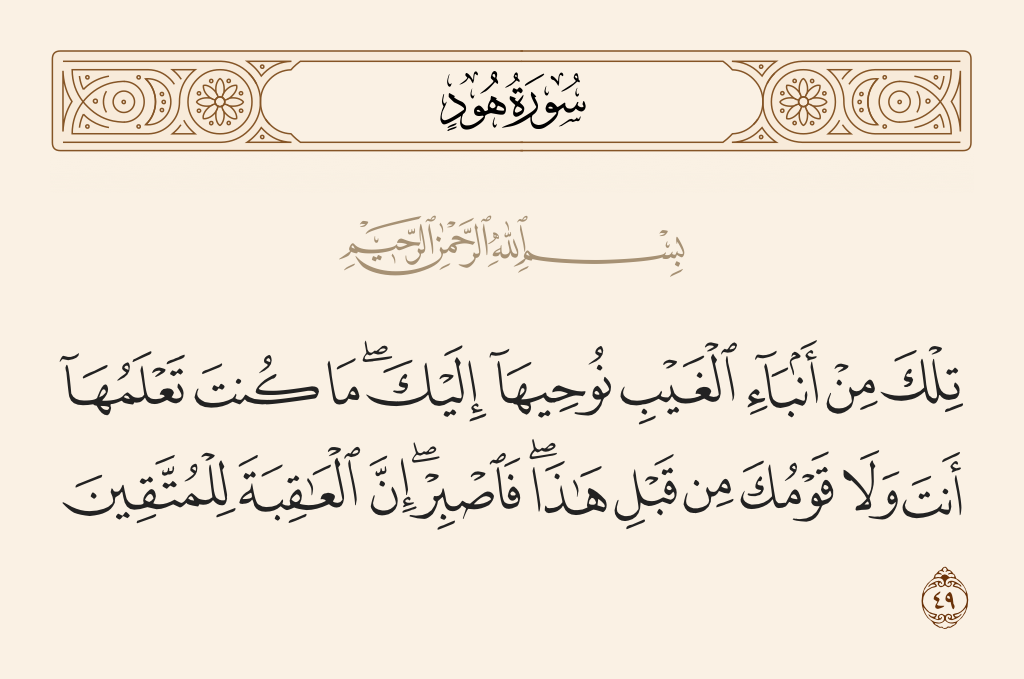 سُورَةُ هُودٍ
بِسْمِ ٱللَّهِ ٱلرَّحْمَٰنِ ٱلرَّحِيمِ
تِلْكَ مِنْ أَنۢبَآءِ ٱلْغَيْبِ نُوحِيهَآ إِلَيْكَ ۖ مَا كُنتَ تَعْلَمُهَآ
أَنتَ وَلَا قَوْمُكَ مِن قَبْلِ هَـٰذَا ۖ فَٱصْبِرْ ۖ إِنَّ ٱلْعَـٰقِبَةَ لِلْمُتَّقِينَ
٤٩